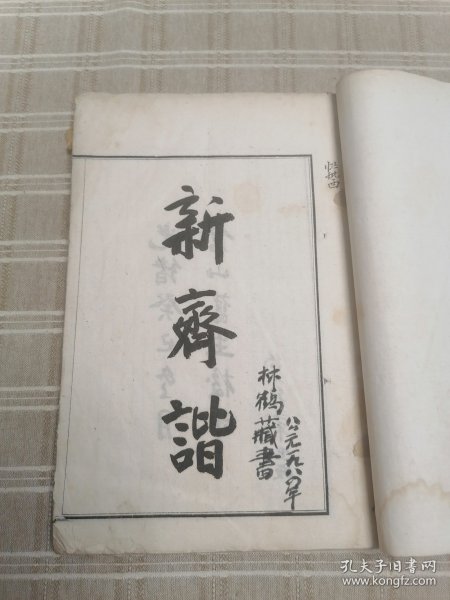 新齊諧
林鶴藏書
公元一九八〇年
孔夫子旧书网
www.kongfz.com